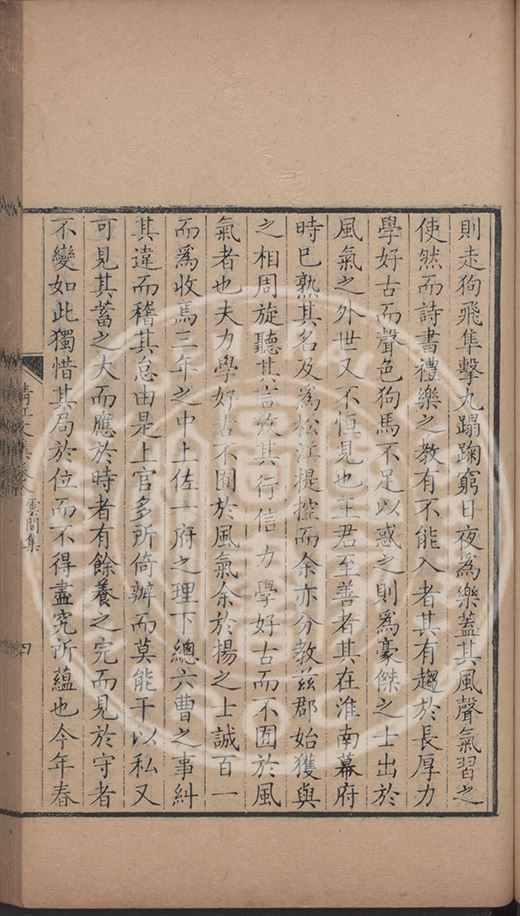 則走狗飛隼擊九蹋踘窮日夜爲樂蓋其風聲氣習之
使然而詩書禮樂之教有不能入者其有趨於長厚力
學好古而聲色狗馬不足以惑之則爲豪傑之士出於
風氣之外世又不恒見也王君至善者其在淮南幕府
時已熟其名及爲松江提控而余亦分教茲郡始獲與
之相周旋聽其言攷其行信力學好古而不囿於風
氣者也夫力學好善不囿於風氣余於揚之士誠百一
而爲收焉三年之中上佐一府之理下總六曹之事糾
其違而稽其怠由是上官多所倚辦而莫能干以私又
可見其蓄之大而應於時者有餘養之完而見於守者
不變如此獨惜其局於位而不得盡究所蘊也今年春
清江文集卷
雲間集
四